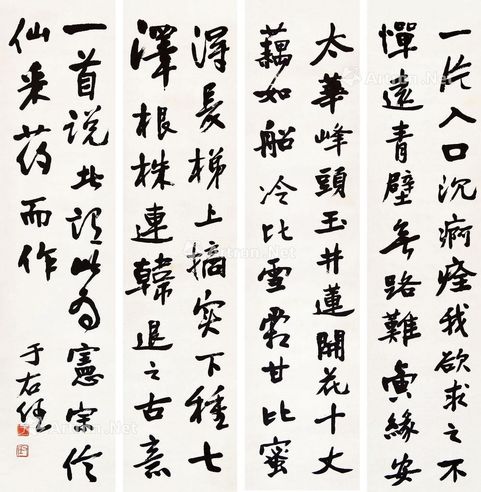 一片入口沉痾痊我欲求之不
憚遠青壁無路難夤緣安
太華峰頭玉井蓮開花十丈
藕如船冷比雪霜甘比蜜
得長梯上摘実下種七
澤根株連韓退之古意
一首説此詩以為憲宗信
仙采药而作
于右任
Artron.Net